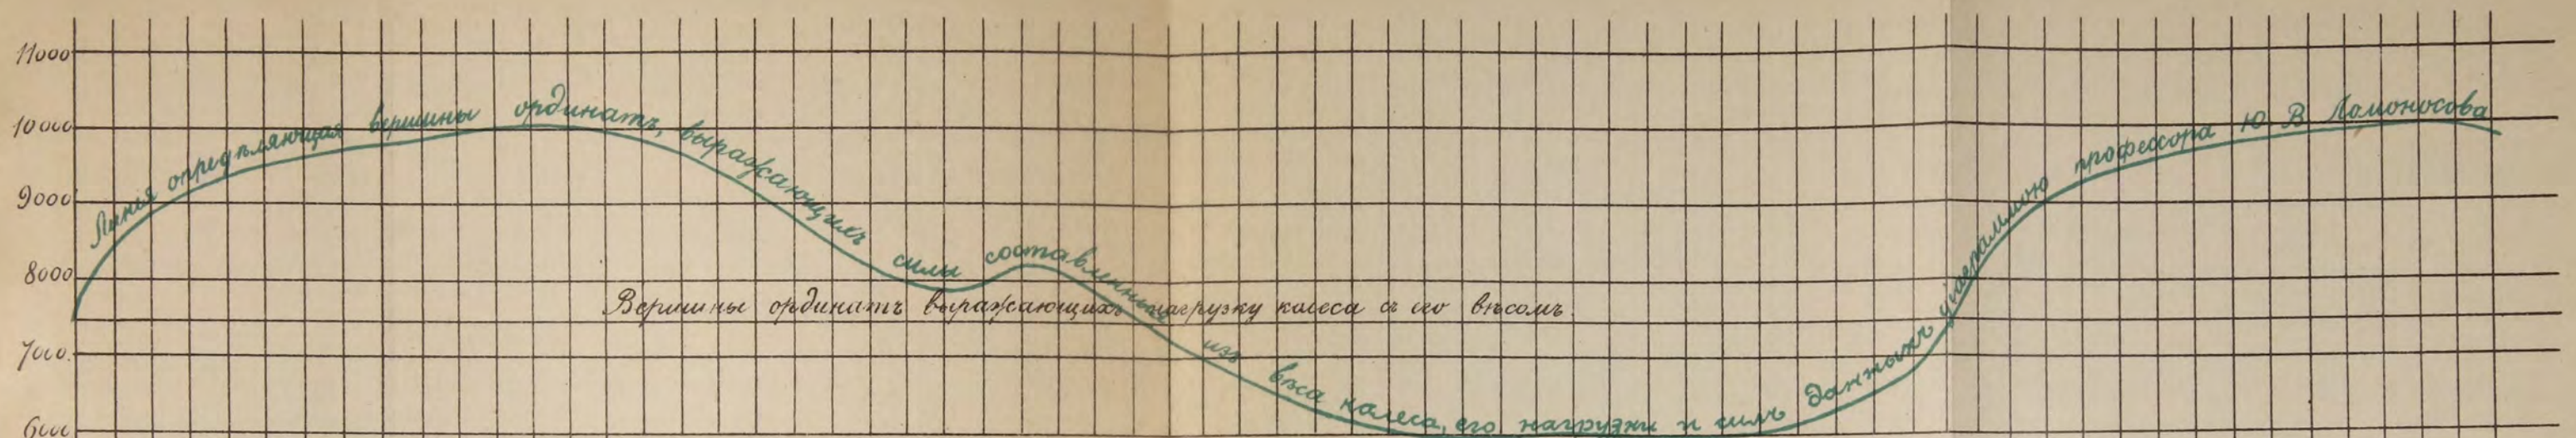 11000
10000
9000
8000
7000
6000
Линія опредѣляющая вершины ординатъ, выражающихъ силы составленныя изъ вѣса колеса, его нагрузки и силъ данныхъ діаграммою профессора Ю В Ломоносова
Вершины ординатъ выражающихъ нагрузку колеса съ его вѣсомъ.